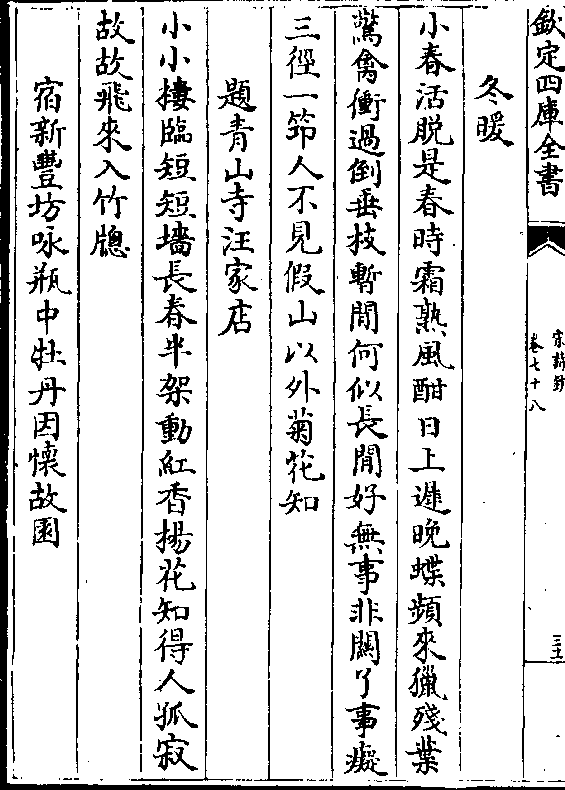 欽定四庫全書
宋詩鈔
卷七十八
冬暖
小春活脱是春時霜熟風酣日上遲晚蝶頻來獵殘葉
驚禽衝過倒垂枝暫閒何似長閒好無事非關了事癡
三徑一筇人不見假山以外菊花知
題青山寺汪家店
小小摟臨短短墻長春半架動紅香揚花知得人孤寂
故故飛來入竹牕
宿新豐坊咏瓶中牡丹因懷故園